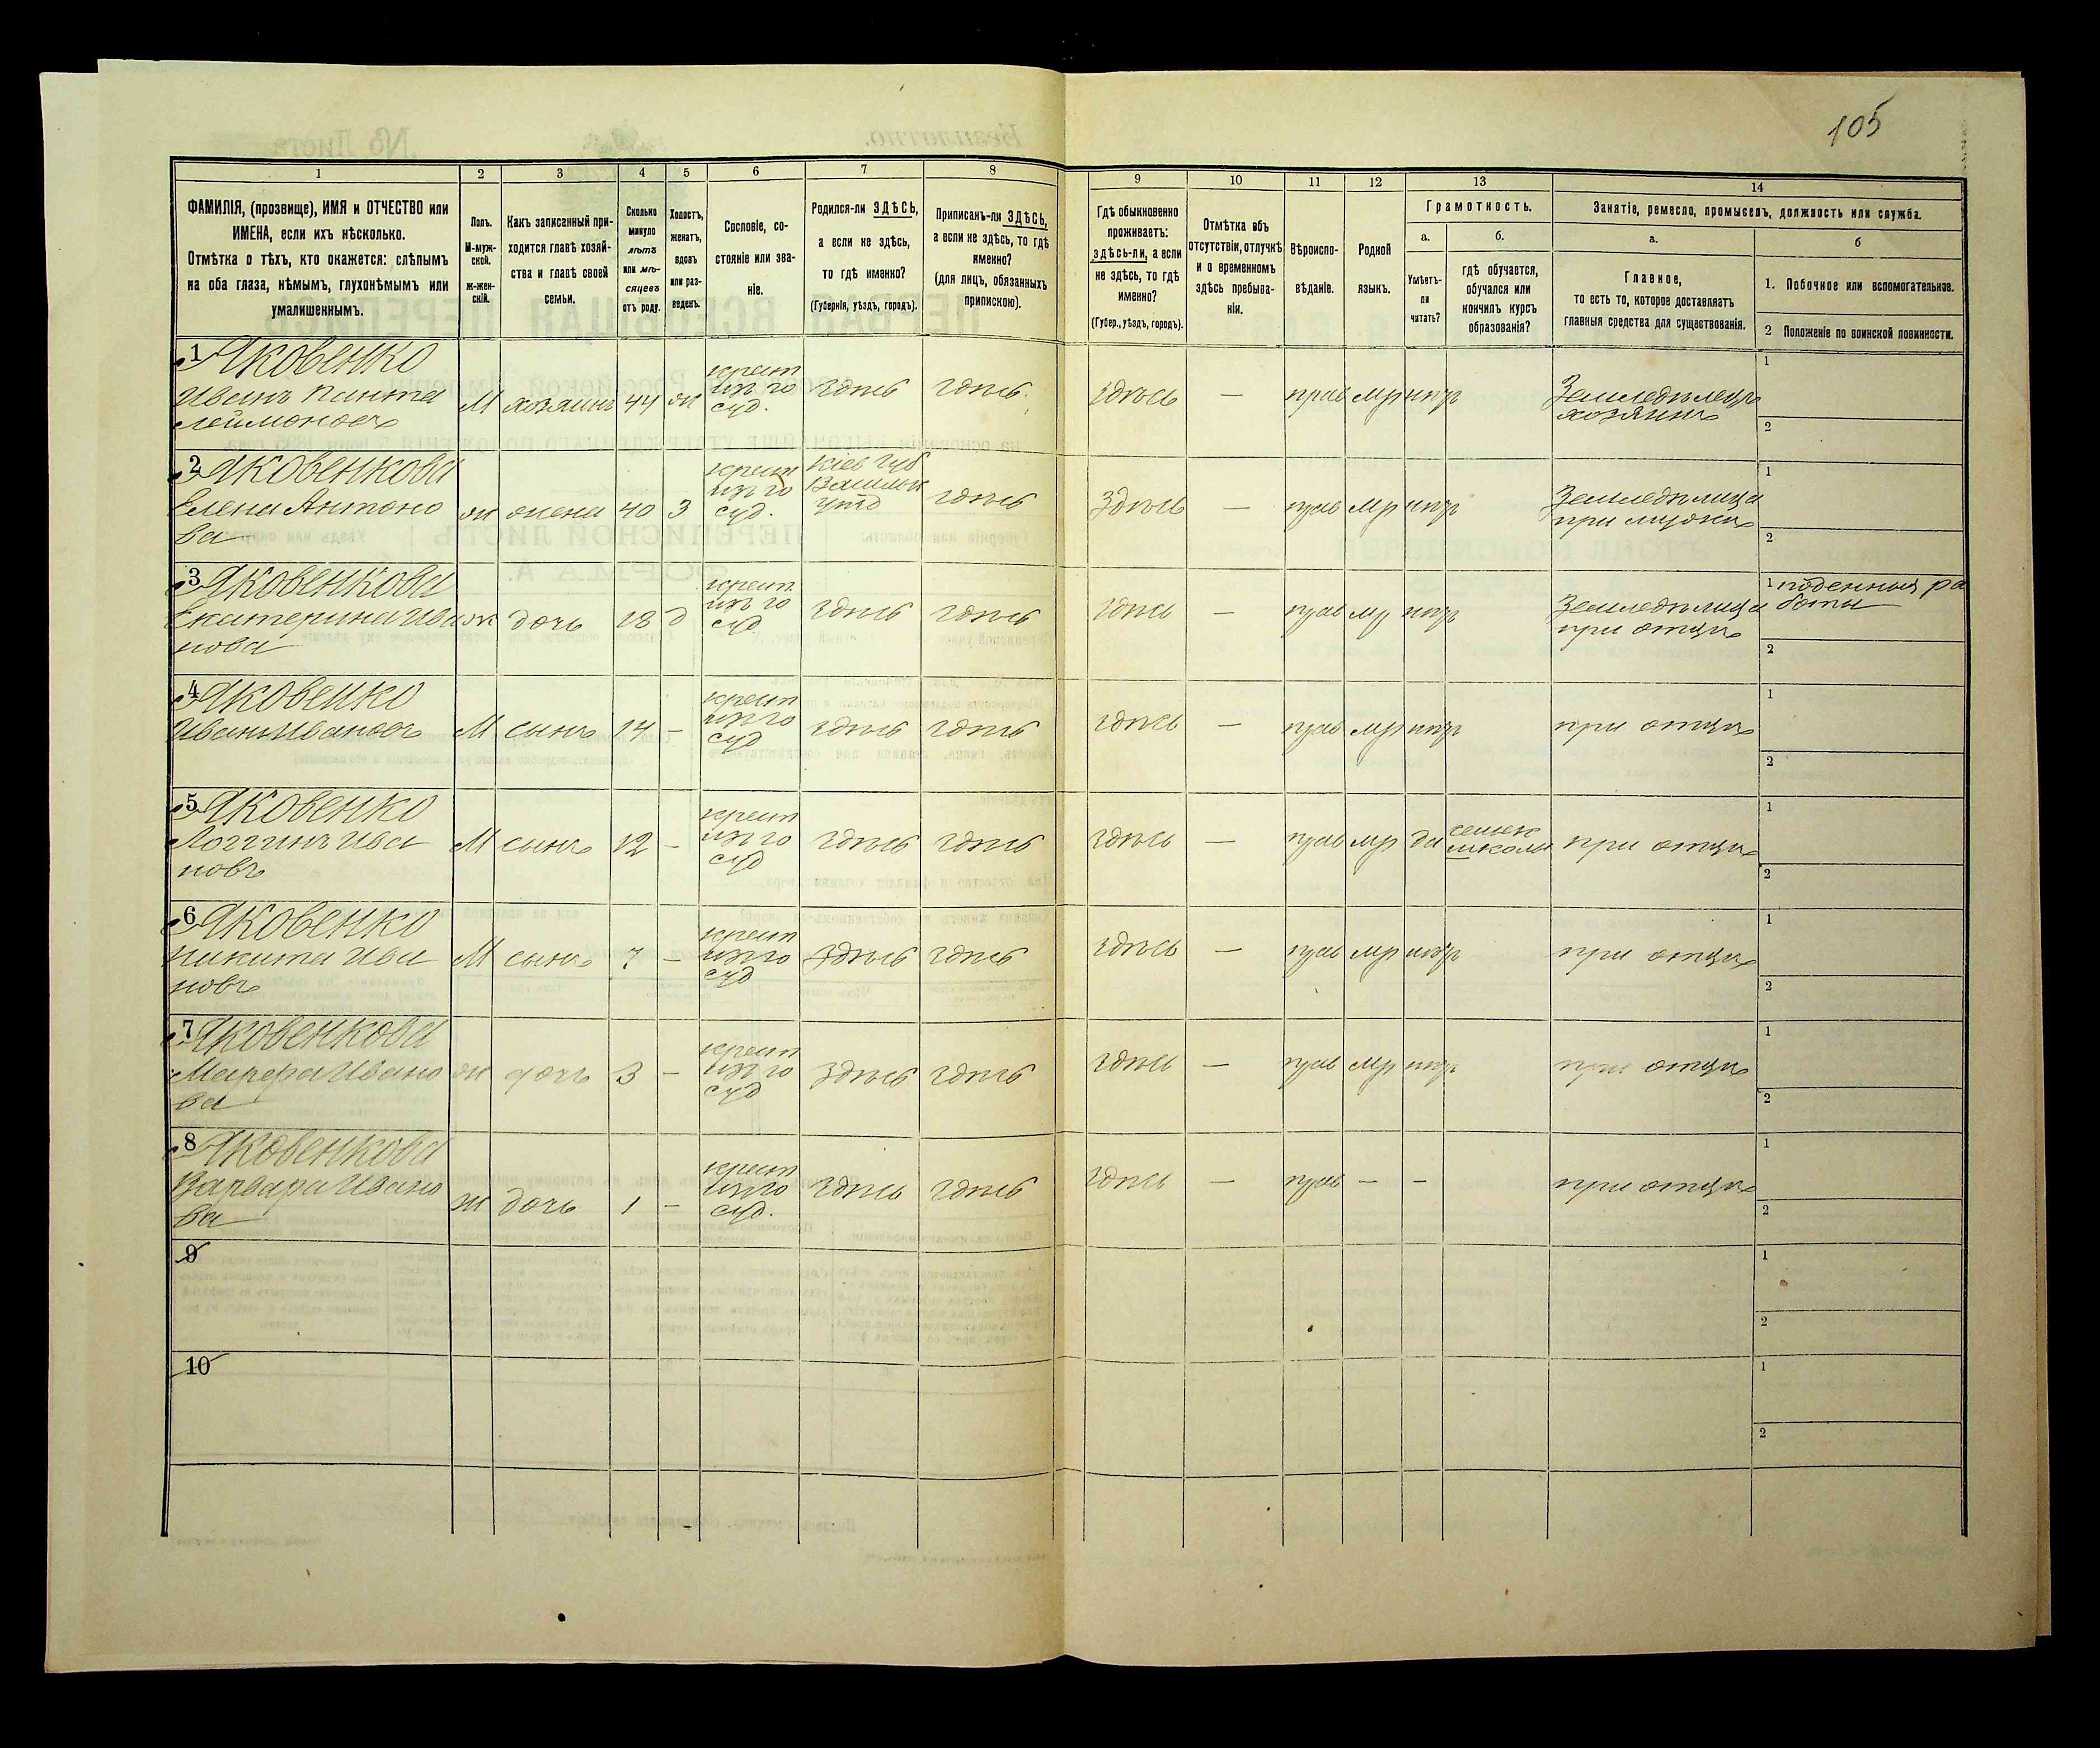 105
1 2 3 4 5 6 7 8 9 10 11 12 13 14
ФАМИЛІЯ, (прозвище), ИМЯ и ОТЧЕСТВО или
ИМЕНА, если ихъ нѣсколько.
Отмѣтка о тѣхъ, кто окажется: слѣпымъ
на оба глаза, нѣмымъ, глухонѣмымъ или
умалишеннымъ.
Полъ.
М-муж-
ской.
Ж-жен-
скій.
Какъ записанный при-
ходится главѣ хозяй-
ства и главѣ своей
семьи.
Сколько
минуло
лѣтъ
или мѣ-
сяцевъ
отъ роду.
Холостъ,
женатъ,
вдовъ
или раз-
веденъ.
Сословіе, со-
стояніе или зва-
ніе.
Родился-ли ЗДѢСЬ,
а если не здѣсь,
то гдѣ именно?
(Губернія, уѣздъ, городъ).
Приписанъ-ли ЗДѢСЬ,
а если не здѣсь, то гдѣ
именно?
(для лицъ, обязанныхъ
припискою).
Гдѣ обыкновенно
проживаетъ:
здѣсь-ли, а если
не здѣсь, то гдѣ
именно?
(Губер., уѣздъ, городъ).
Отмѣтка объ
отсутствіи, отлучкѣ
и о временномъ
здѣсь пребыва-
ніи.
Вѣроиспо-
вѣданіе.
Родной
языкъ.
Грамотность.
а.
Умѣетъ-
ли
читать?
б.
гдѣ обучается,
обучался или
кончилъ курсъ
образованія?
Занятіе, ремесло, промыселъ, должность или служба.
а.
Главное,
то есть то, которое доставляетъ
главныя средства для существованія.
б
1. Побочное или вспомогательное.
2 Положеніе по воинской повинности.
1 Яковенко
Иванъ Панте
леймоновъ
М хозяинъ 44 ж
крест
изъ го
суд.
здѣсь здѣсь здѣсь — прав мр нѣтъ
Земледѣлецъ
хозяинъ
1
2
2 Яковенкова
Елена Антоно
ва
ж жена 40 З
крест
изъ го
суд.
Кіев губ
Васильк
уѣзд
здѣсь здѣсь — прав мр нѣтъ
Земледѣлица
при мужѣ
1
2
3 Яковенкова
Екатерина Ива
нова
ж дочь 18 д
крест.
изъ го
суд
здѣсь здѣсь здѣсь — прав мр нѣтъ
Земледѣлица
при отцѣ
1 поденныя ра
боты
2
4 Яковенко
Иванъ Ивановъ
М сынъ 14 —
крест
изъ го
суд
здѣсь здѣсь здѣсь — прав мр нѣтъ при отцѣ
1
2
5 Яковенко
Логгинъ Ива
новъ
М сынъ 12 —
крест
изъ го
суд
здѣсь здѣсь здѣсь — прав мр да
сельск
школы
при отцѣ
1
2
6 Яковенко
Никита Ива
новъ
М сынъ 7 —
крест
изъ го
суд
здѣсь здѣсь здѣсь — прав мр нѣтъ при отцѣ
1
2
7 Яковенкова
Марфа Ивано
ва
ж дочь 3 —
крест
изъ го
суд
здѣсь здѣсь здѣсь — прав мр нѣтъ при отцѣ
1
2
8 Яковенкова
Варвара Ивано
ва
ж дочь 1 —
крест
изъ го
суд.
здѣсь здѣсь здѣсь — прав — — при отцѣ
1
2
9
1
2
10
1
2